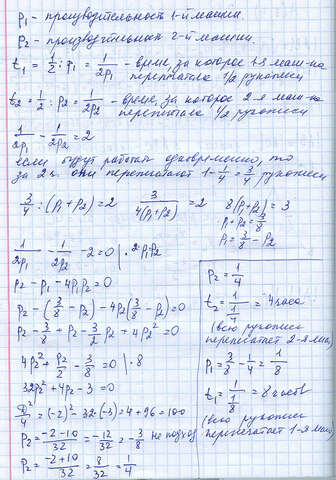 p₁ - производительность 1-й машин.
p₂ - производительность 2-й машини.
t₁ = 1/2 : p₁ = 1/(2p₁) - время, за которое 1-я маш-ка
перепечатала 1/2 рукописи
t₂ = 1/2 : p₂ = 1/(2p₂) - время, за которое 2-я маш-ка
перепечатала 1/2 рукописи
1/(2p₁) - 1/(2p₂) = 2
если будут работать одновременно, то
за 2ч. они перепечатают 1 - 1/4 = 3/4 рукописи
3/4 : (p₁ + p₂) = 2 3/(4(p₁+p₂)) = 2 8(p₁+p₂) = 3
p₁ + p₂ = 3/8
p₁ = 3/8 - p₂
1/(2p₁) - 1/(2p₂) - 2 = 0 | · 2p₁p₂
p₂ - p₁ - 4p₁p₂ = 0
p₂ - (3/8 - p₂) - 4p₂(3/8 - p₂) = 0
p₂ - 3/8 + p₂ - 3/2 p₂ + 4p₂² = 0
4p₂² + p₂/2 - 3/8 = 0 | · 8
32p₂² + 4p₂ - 3 = 0
D/4 = (-2)² - 32·(-3) = 4 + 96 = 100
p₂ = (-2-10)/32 = -12/32 = -3/8 не подход
p₂ = (-2+10)/32 = 8/32 = 1/4
p₂ = 1/4
t₂ = 1/(1/4) = 4 часа
(всю рукопись
перепечатает 2-я маш)
p₁ = 3/8 - 1/4 = 1/8
t₁ = 1/(1/8) = 8 часов
(всю рукопись
перепечатает 1-я маш)